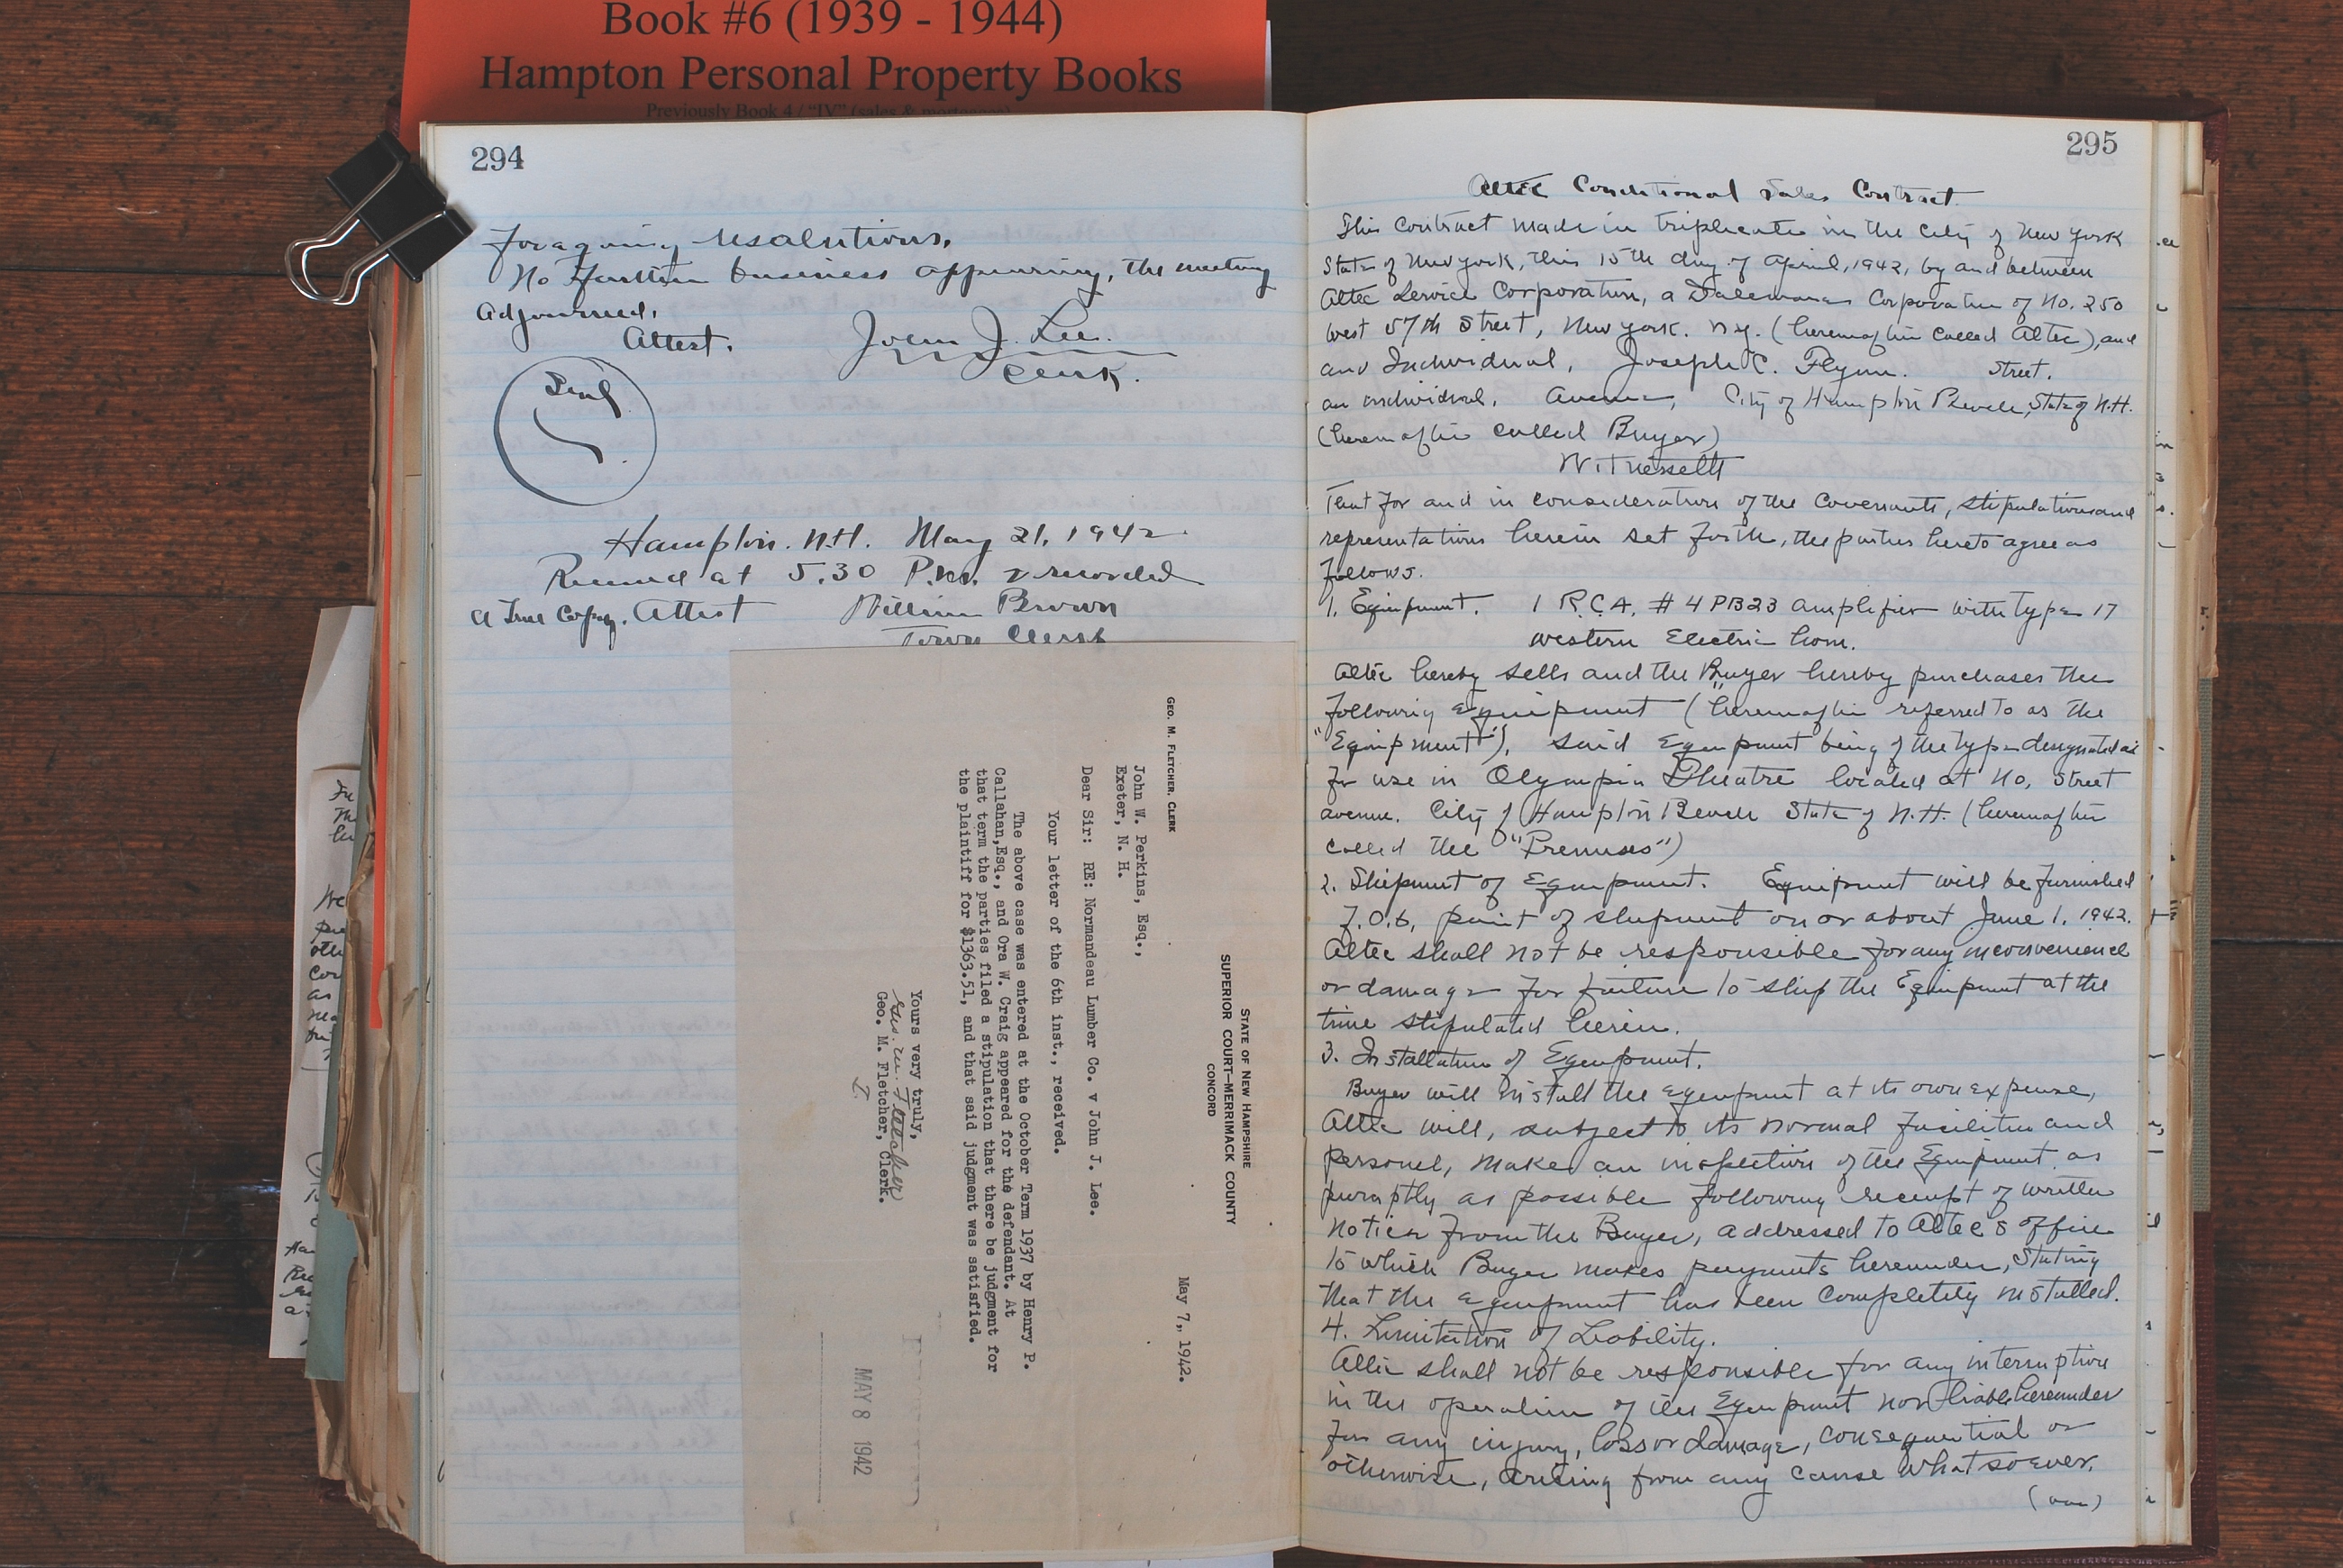 Book #6 (1939 - 1944)
Hampton Personal Property Books
Previously Book 4 / "IV" (sales & mortgages)
294
foregoing resolutions.
No further business appearing, the meeting
Adjourned.
Attest. John J. Lee.
Clerk.
Seal
Hampton. N.H. May 21, 1942
Received at 5.30 P.M. & recorded
A True Copy. Attest William Brown
Town Clerk
STATE OF NEW HAMPSHIRE
SUPERIOR COURT—MERRIMACK COUNTY
CONCORD
GEO. M. FLETCHER, CLERK
May 7, 1942.
John W. Perkins, Esq.,
Exeter, N. H.
Dear Sir: RE: Normandeau Lumber Co. v John J. Lee.
Your letter of the 6th inst., received.
The above case was entered at the October Term 1937 by Henry P.
Callahan,Esq., and Ora W. Craig appeared for the defendant. At
that term the parties filed a stipulation that there be judgment for
the plaintiff for $1363.51, and that said judgment was satisfied.
Yours very truly,
Geo. M. Fletcher
Geo. M. Fletcher, Clerk.
MAY 8 1942
295
Altec Conditional Sales Contract.
This contract made in triplicate in the City of New York
State of New York, this 15th day of April, 1942, by and between
Altec Service Corporation, a Delaware Corporation of No. 250
West 57th Street, New York. N.Y. (hereinafter called Altec), and
and Individual, Joseph C. Flynn. Street.
an individual, Avenue, City of Hampton Beach, State of N.H.
(hereinafter called Buyer)
Witnesseth
That for and in consideration of the Covenants, stipulations and
representations herein set forth, the parties hereto agree as
follows.
1. Equipment. 1 R.C.A. #4PB23 amplifier with type 17
Western Electric horn.
Altec hereby sells and the Buyer hereby purchases the
following equipment (hereinafter referred to as the
"Equipment"), said Equipment being of the type designated as
for use in Olympia Theatre located at No. Street
avenue. City of Hampton Beach State of N.H. (hereinafter
called the "Premises")
2. Shipment of Equipment. Equipment will be furnished
F.O.b. point of shipment on or about June 1. 1942.
Altec shall not be responsible for any inconvenience
or damage for failure to ship the Equipment at the
time stipulated herein.
3. Installation of Equipment.
Buyer will install the equipment at its own expense,
Altec will, subject to its normal facilities and
personel, make an inspection of the Equipment as
promptly as possible following receipt of written
notice from the Buyer, addressed to Altec's office
to which Buyer makes payments hereunder, stating
that the equipment has been completely installed.
4. Limitation of Liability.
Altec shall not be responsible for any interruption
in the operation of the Equipment nor liable hereunder
for any injury, loss or damage, consequential or
otherwise, arising from any cause whatsoever.
(over)